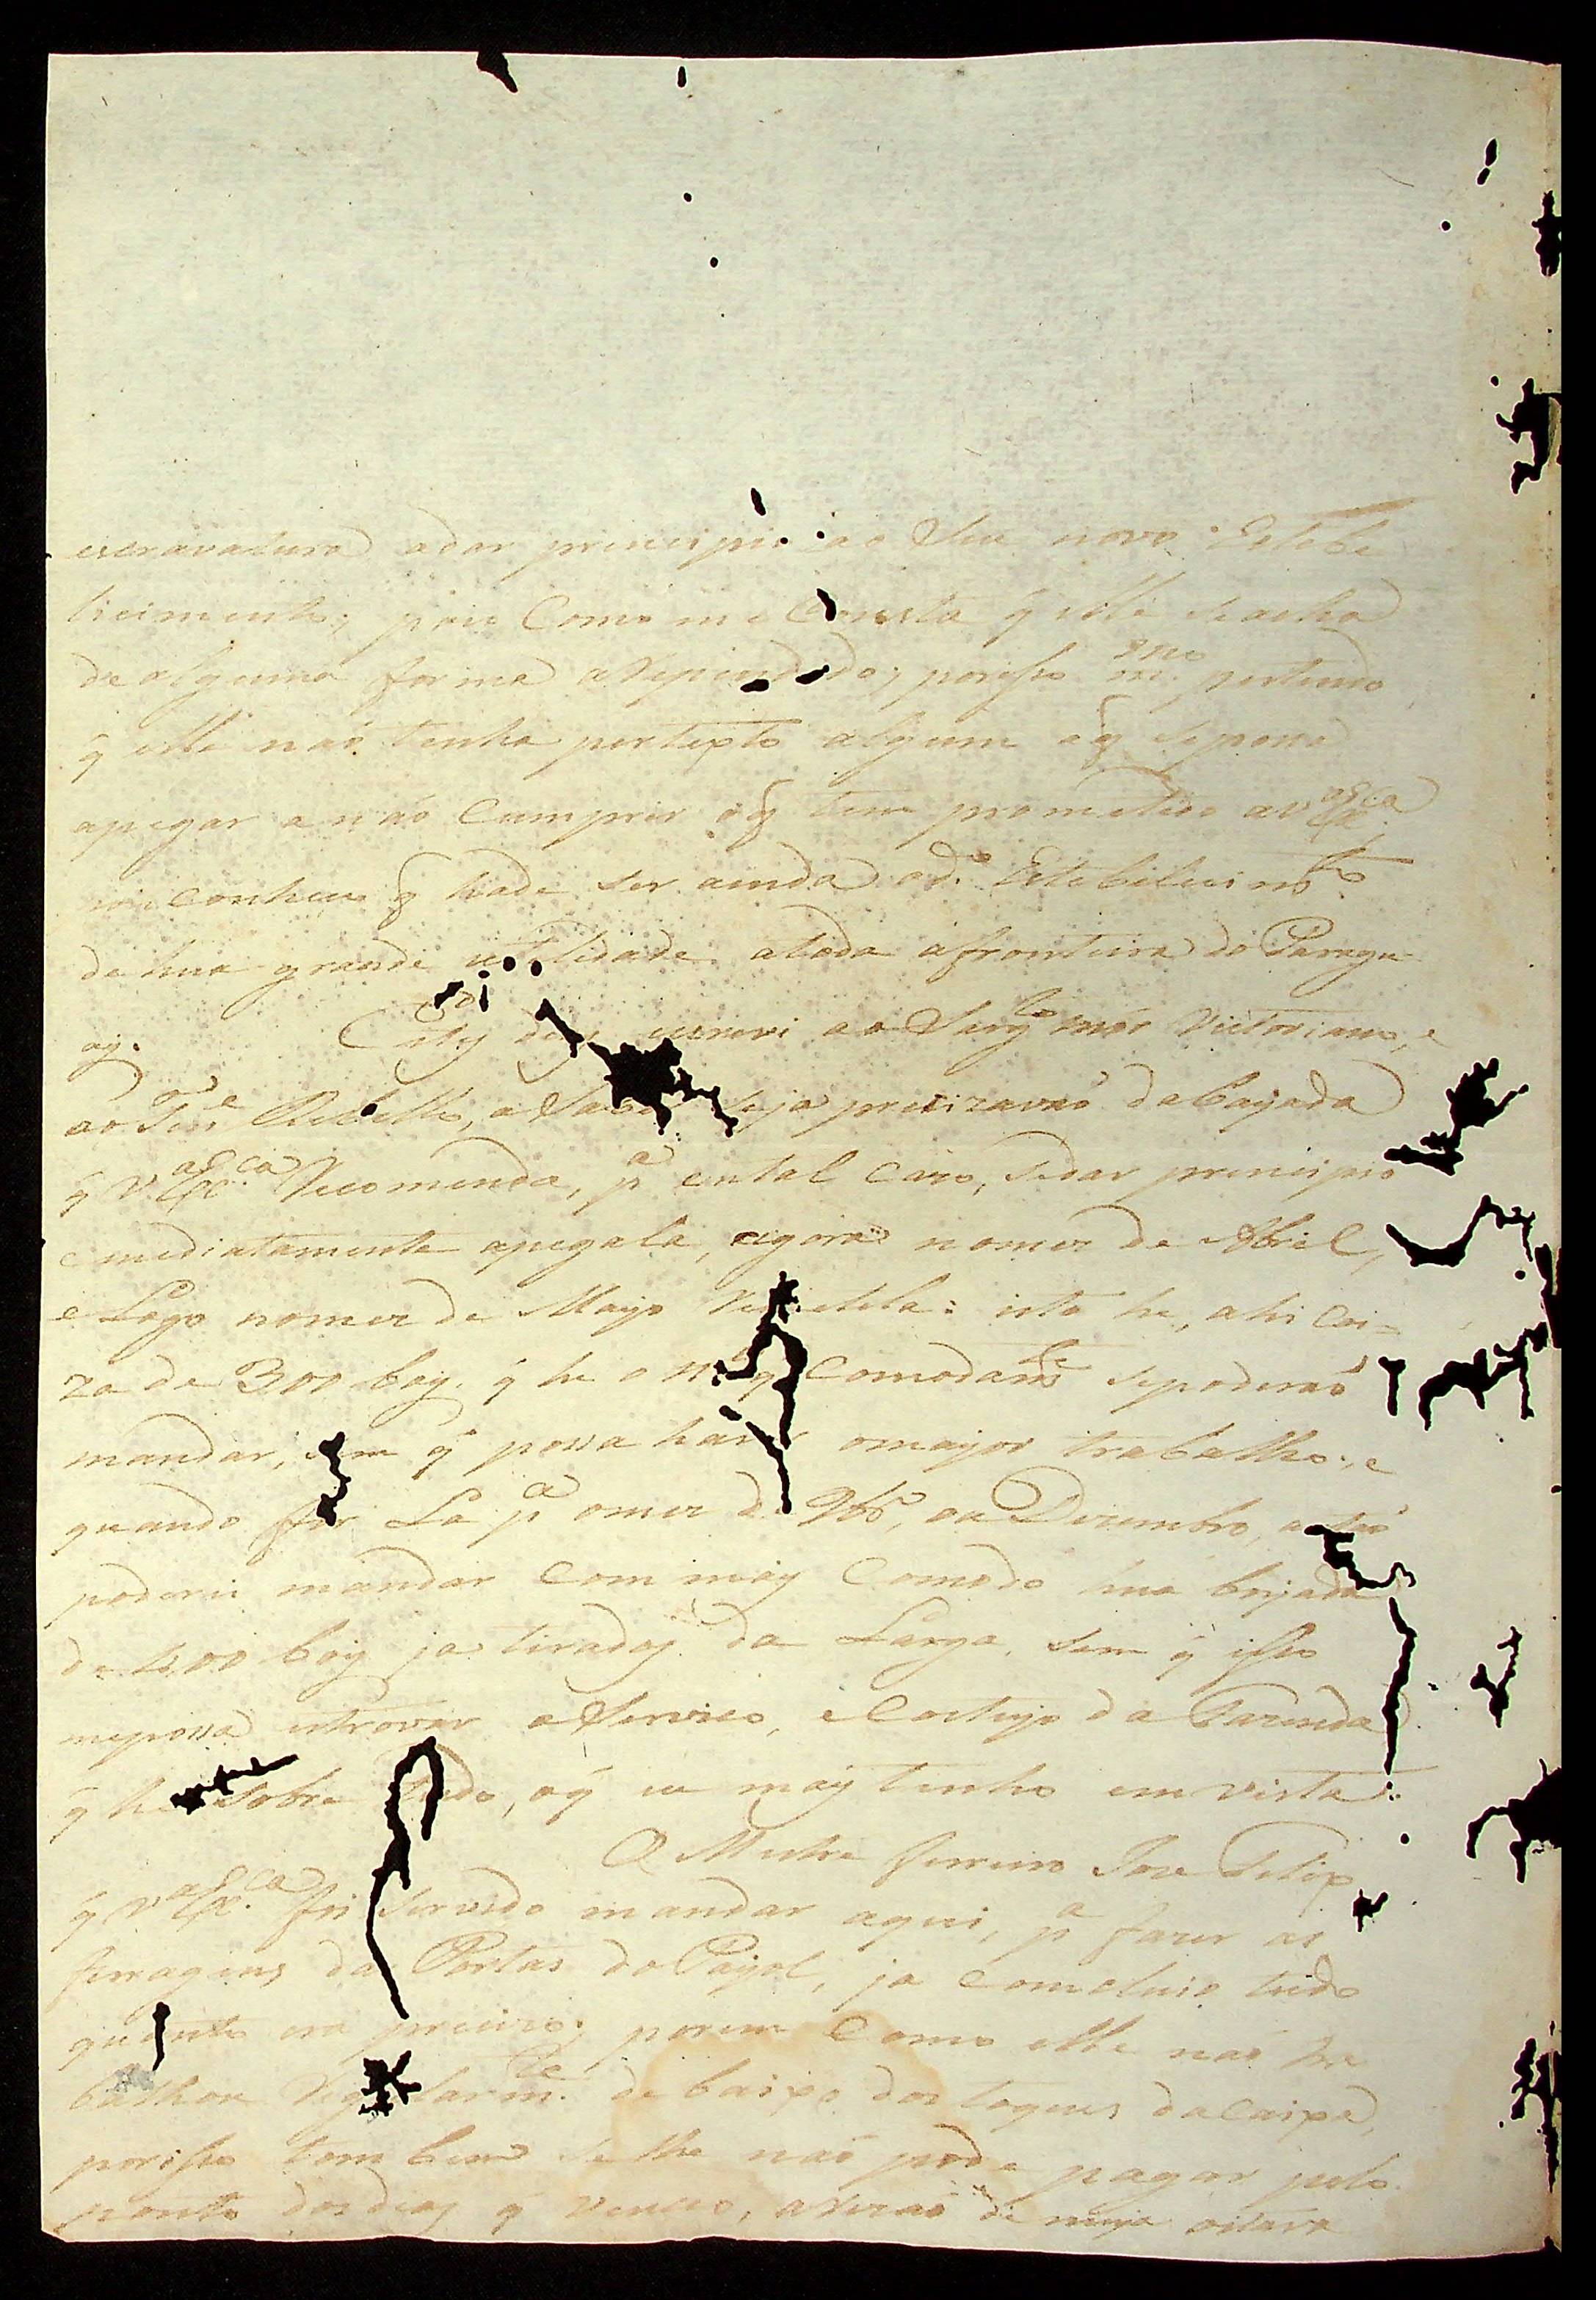 escravatura adar principio ao Seu novo Estebe
licimento; pois Como me Consta q̃ elle seacha
dealguma forma aRependido; porisso m.mo pertendo
q̃ elle naõ tenha pertexto algum aq̃ sepossa
apegar anaõ Cumprir oq̃ tem prometido aV.a Ex.ca
conheco q̃ hade ser ainda od.o Estebilicim.to
dehua grande utilidade atoda afronteira do Paragu
ay. escrevi ao Sarg.to mór Victoriano, e
ao Ten.e Rebello, aSaber seja precizavaõ daBoyada
q̃ V.a Ex.ca Recomenda, p.a emtal Cazo, sedar principio
emediatamente apegala, agora nomez de Abril,
e Logo nomez de Mayo Remetela: isto he, ahi Coi=
za de 300 boys. q̃ he o N.o q̃ Comodam.te sepoderaõ
mandar, sem q̃ possa haver omayor trabalho; e
quando for La p.a omez de 9br.o, ou Dezembro,
poderei mandar Com mays Comodo hua boyada
de 400 boys ja tirados da Larga, sem q̃ isso
mepossa estrovar oServico, e Costeyo da Fazenda
q̃ he sobre tudo, oq̃ eu mays tenho em vista:
O Mestre ferreiro Joze Felip
q̃ V.a Ex.ca foi Servido mandar aqui, p.a fazer as
ferragens das Portas do Payol, ja Comcluio tudo
quanto era precizo; porem Como elle naõ tra
balhou Regularm.te debaixo dos toques daCaixa,
porisso tambem selhe naõ pode pagar pelo
ponto dosdias q̃ venceo, aRezaõ de meya oitava